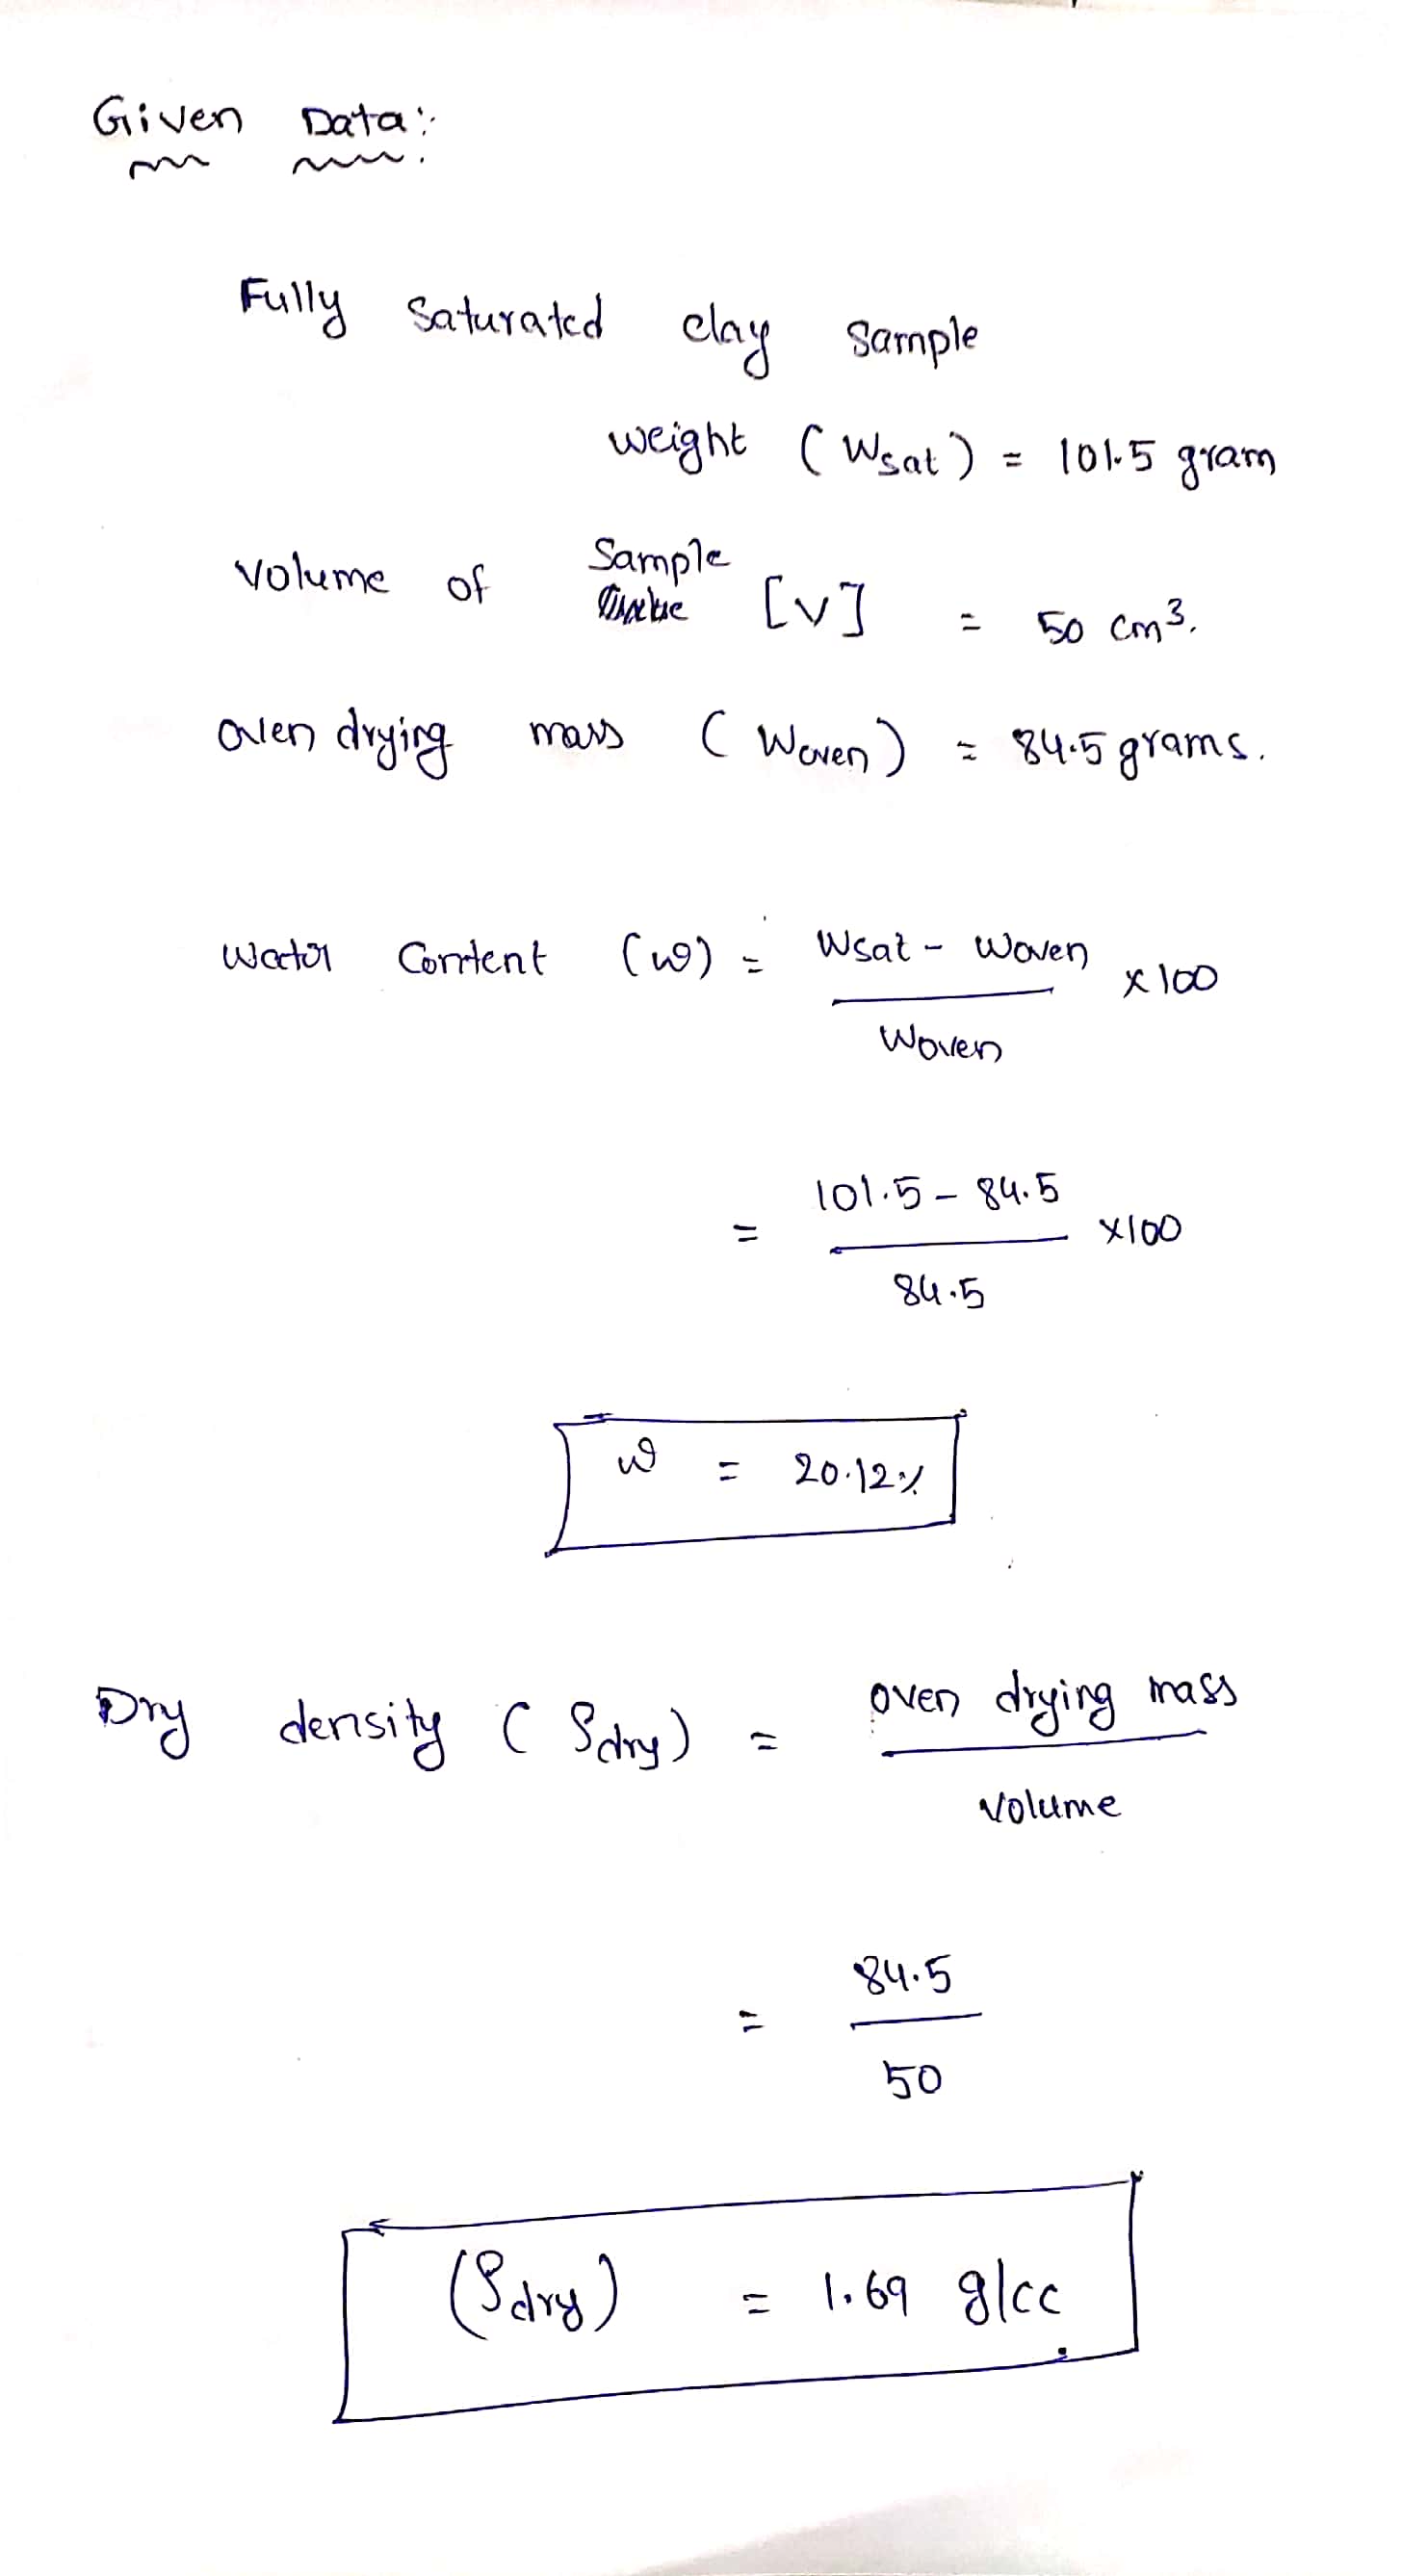 Given Data:
Fully Saturated clay Sample
weight (Wsat) = 101.5 gram
Volume of Sample [V] = 50 cm³.
Oven drying mass (Woven) = 84.5 grams.
Water Content (w) = Wsat - Woven
x 100
Woven
= 101.5 - 84.5
x100
84.5
w = 20.12%
Dry density (ρdry) = oven drying mass
Volume
= 84.5
50
(ρdry) = 1.69 g/cc